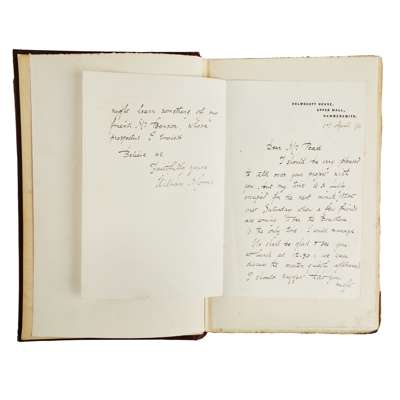 KELMSCOTT HOUSE,
UPPER MALL,
HAMMERSMITH.
April
Dear Mr
I should be very pleased
to talk over your project with
you, but my time is a good
occupied for the next month; that
next Saturday when a few friends
are coming to see the
is the only time I could manage.
We shall be glad to see you
at lunch at 12.30; we can
discuss the matter quietly afterward
I should suggest that you
might
might learn something of my
friend Mr whose
prospectus I
Believe me
Faithfully yours
William Morris